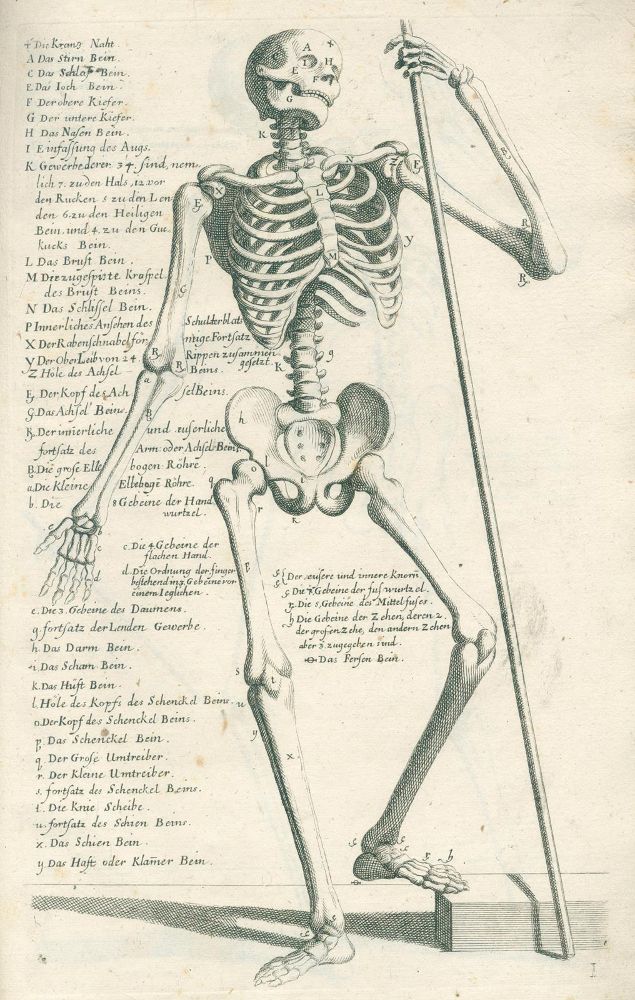 † Die Krantz Naht.
A Das Stirn Bein.
C Das Schlaf Bein.
E Das Joch Bein.
F Der obere Kiefer.
G Der untere Kiefer.
H Das Nasen Bein.
I Einfassung des Augs.
K Gewerbe derer 34. sind, nem„
lich 7. zu den Hals, 12. vor
den Rucken 5 zu den Len
den 6. zu den Heiligen
Bein. und 4. zu den Guc
kucks Bein.
L Das Brust Bein.
M Die zugespiste Kruspel
des Brust Beins.
N Das Schlissel Bein.
P Innerliches Ansehen des Schulderblats
X Der Rabenschnabelför nige Fortsatz
y Der Ober Leib von 24. Rippen zusammen gesetzt.
Z Höle des Achsel Beins.
E. Der Kopf des Ach sel Beins.
G. Das Achsel Beins.
R. Der innerliche und euserliche
fortsatz des Arm oder Achsel Beins,
B. Die grose Elle bogen Röhre.
a. Die kleine Ellebogē Röhre.
b. Die 8 Gebeine der Hand
wurtzel.
c. Die 4 Gebeine der
flachen Hand.
d. Die Ordnung der finger
bestehend in 3. Gebeine vor
einem Ieglichen.
e. Die 3. Gebeine des Daumens.
g. fortsatz der Lenden Gewerbe.
h. Das Darm Bein.
i. Das Scham Bein.
k. Das Hüft Bein.
l. Höle des Kopfs des Schenckel Beins.
o. Der Kopf des Schenckel Beins.
p. Das Schenckel Bein.
q. Der Grose Umtreiber.
r. Der Kleine Umtreiber.
s. fortsatz des Schenckel Beins.
t. Die Knie Scheibe.
u. fortsatz des Schien Beins.
x. Das Schien Bein.
y. Das Haft oder Klam̄er Bein.
Der eusere und innere Knorn
Die 7. Gebeine der fus wurtzel.
Die 5. Gebeine des Mittelfuses.
h Die Gebeine der Zehen, deren 2.
der grosen Zehe, den andern Zehen
aber 3. zugegeben sind.
Das Fersen Bein.
I